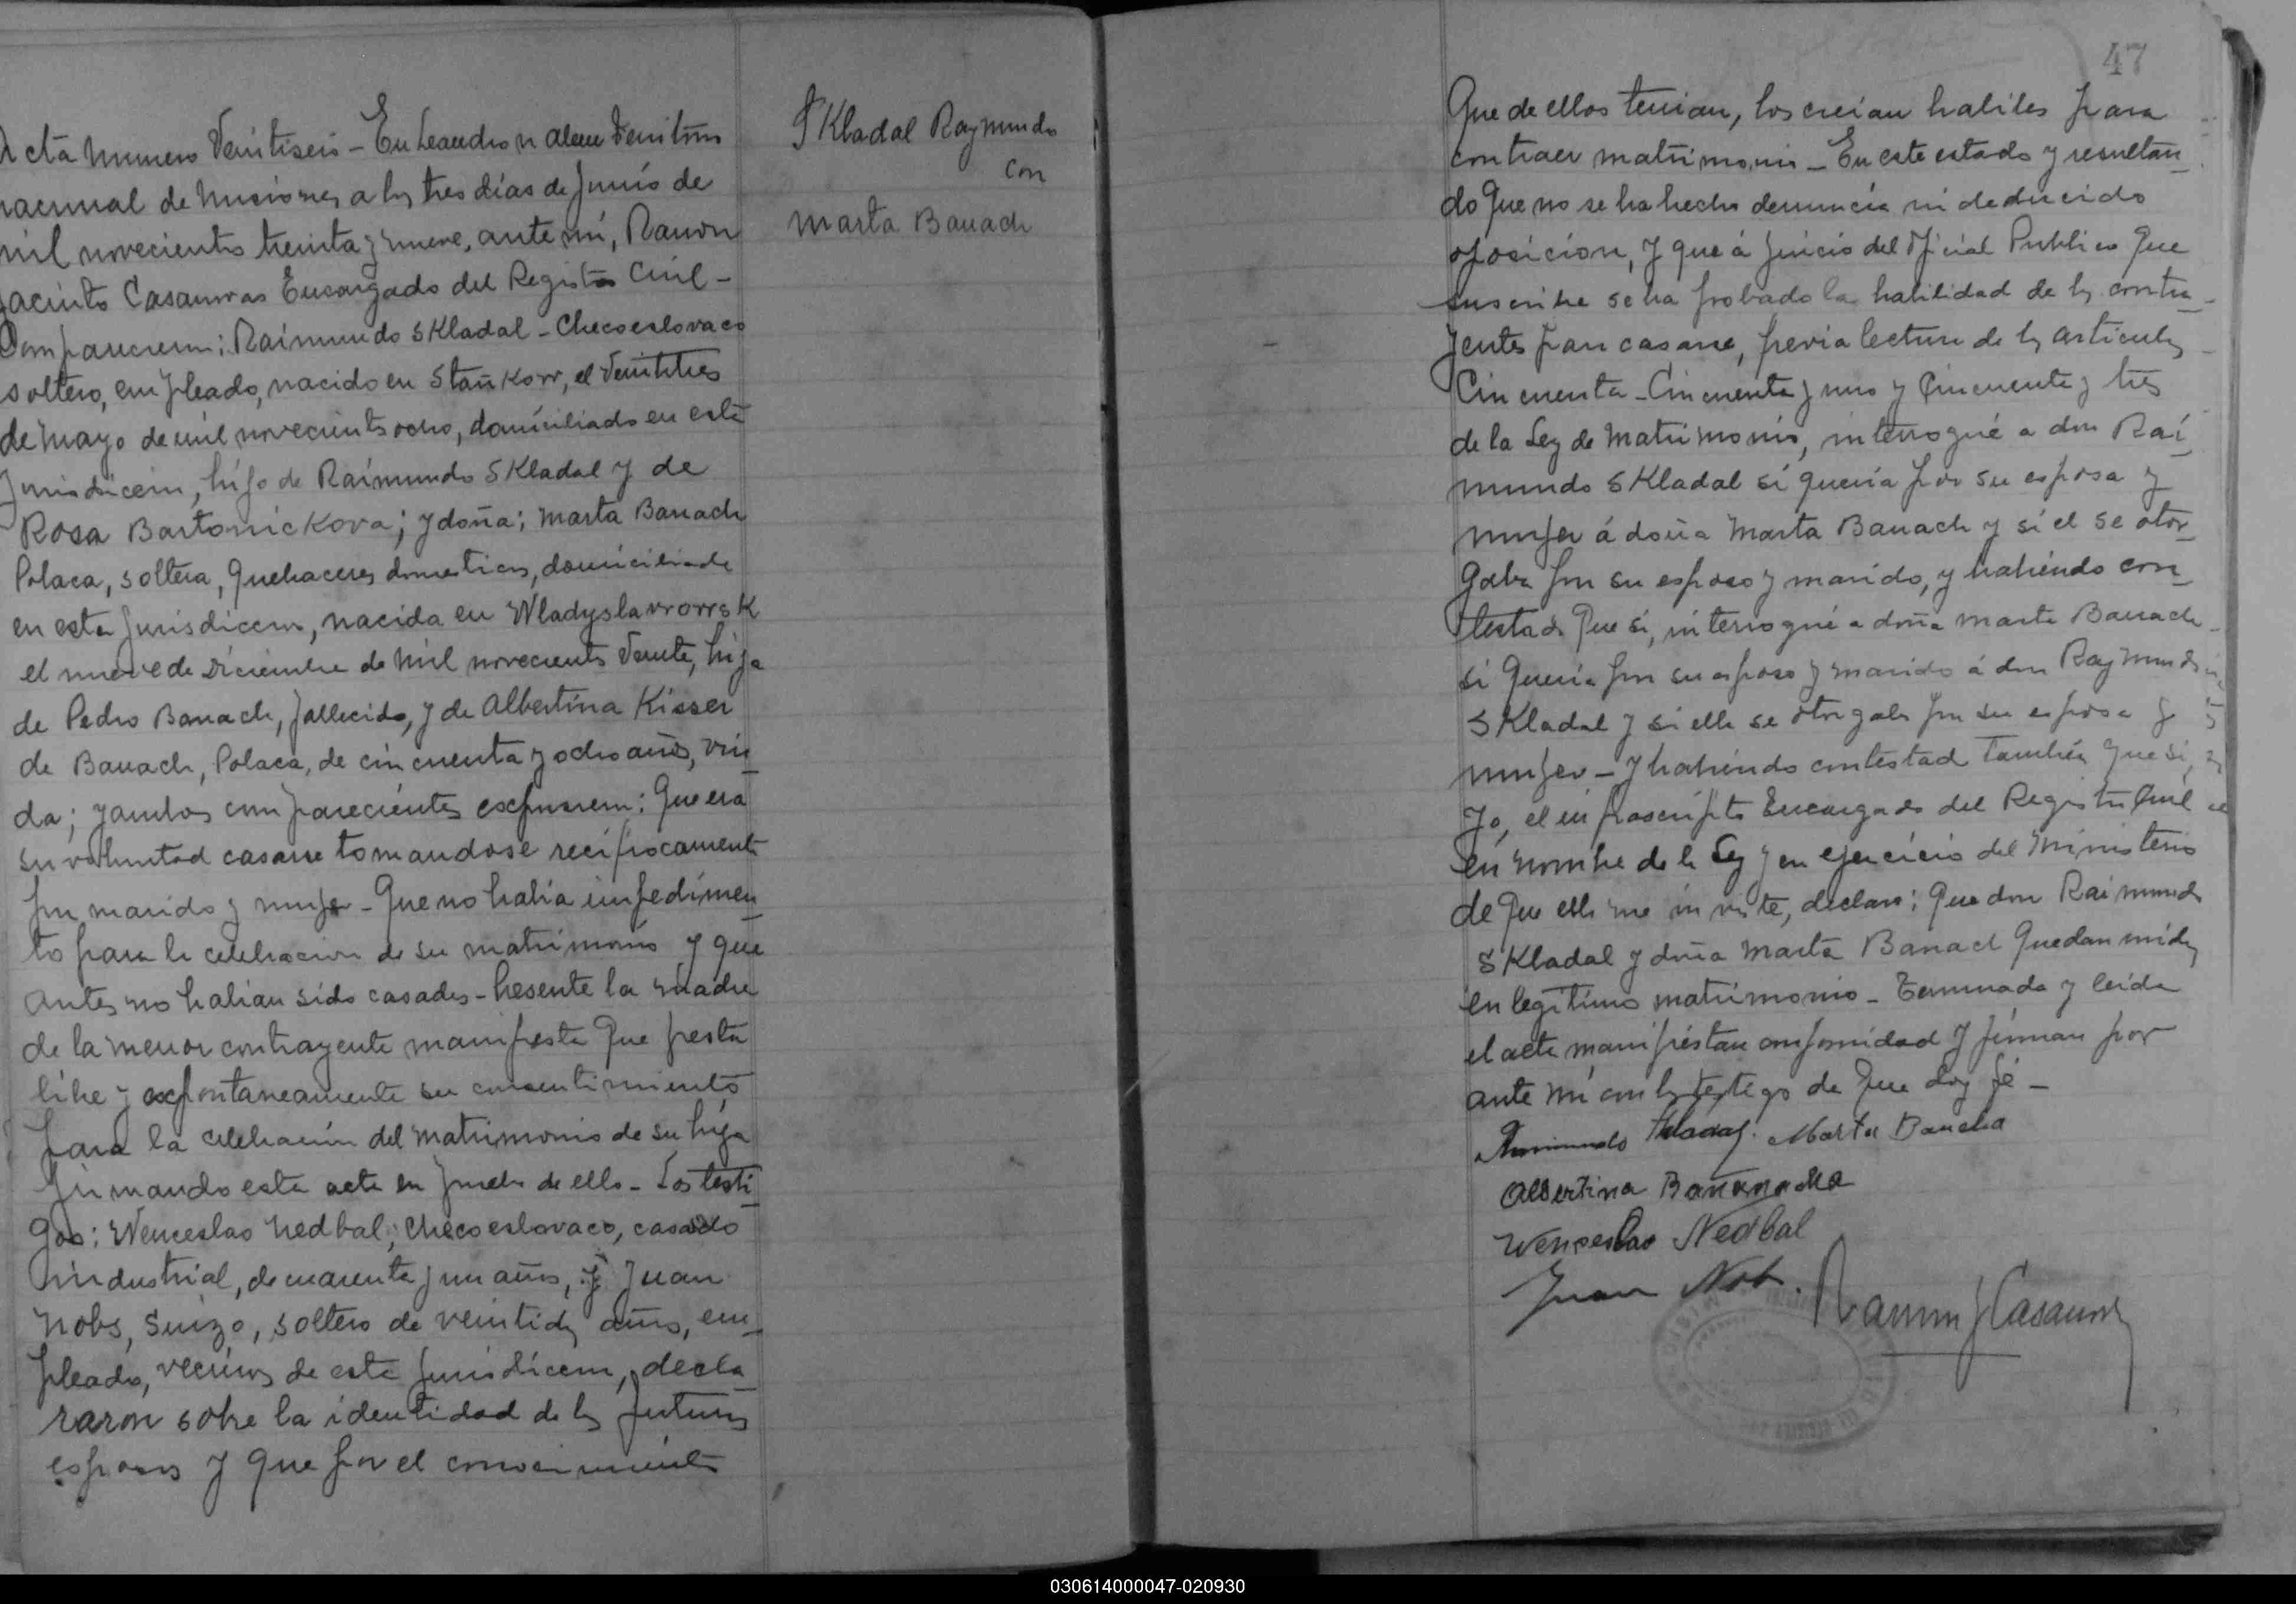 Acta Numero Veintiseis - En Leandro N Alem Territorio
nacional de Misiones a los tres días de Junio de
mil novecientos treinta y nueve, ante mí, Ramon
Jacinto Casanovas Encargado del Registro Civil -
Comparecieron: Raimundo Skladal - Checoeslovaco
soltero, empleado, nacido en Stañkow, el Veintitres
de Mayo de mil novecientos ocho, domiciliado en esta
Jurisdiccion, hijo de Raimundo Skladal y de
Rosa Bartonickova; y doña; Marta Banach
Polaca, soltera, quehaceres domesticos, domiciliada
en esta Jurisdiccion, nacida en Wladyslawowsk
el nueve de Diciembre de Mil novecientos Veinte, hija
de Pedro Banach, fallecido, y de Albertina Kisser
de Banach, Polaca, de cincuenta y ocho años, viu-
da; y ambos comparecientes expusieron: Que era
su voluntad casarse tomandose recíprocamente
por marido y mujer - Que no habia impedimen-
to para la celebracion de su matrimonio y que
antes no habian sido casados - Presente la madre
de la menor contrayente manifiesta que presta
libre y expontaneamente su consentimiento
para la celebración del matrimonio de su hija
firmando esta acta en prueba de ello - Los testi-
gos: Wenceslao Nedbal, Checoeslovaco, casado
industrial, de cuarenta y un años, y Juan
Nobs, Suizo, soltero de veintidos años, em-
pleado, vecinos de esta Jurisdiccion, decla-
raron sobre la identidad de los futuros
esposos y que por el conocimiento
Skladal Raymundo
con
Marta Banach
47
Que de ellos tenian, los creian habiles para
contraer matrimonio - En este estado y resultan-
do que no se ha hecho denuncia ni deducido
oposicion, y que á juicio del Oficial Publico que
suscribe se ha probado la habilidad de los contra-
yentes para casarse, previa lectura de los articulos
Cincuenta - Cincuenta y uno y Cincuenta y tres
de la Ley de Matrimonio, interrogué a don Rai-
mundo Skladal si queria por su esposa y
mujer á doña Marta Banach y si el se otor-
gaba por su esposo y marido, y habiendo con-
testado que si, interrogué a doña Marta Banach -
si queria por su esposo y marido á don Raymundo
Skladal y si ella se otorgaba por su esposa y
mujer - y habiendo contestado tambien que si,
Yo, el infrascripto Encargado del Registro Civil
en nombre de la Ley y en ejercicio del Ministerio
de que ella me inviste, declaro; Que don Raimundo
Skladal y doña Marta Banach quedan unidos
en legítimo matrimonio - Terminada y leida
el acta manifiestan conformidad y firman por
ante mí con los testigos de que doy fé -
Raimundo Skladal. Marta Banacha
Albertina Bananacha
Wenceslao Nedbal
Juan Nobs.
Ramon J Casanovas
030614000047-020930